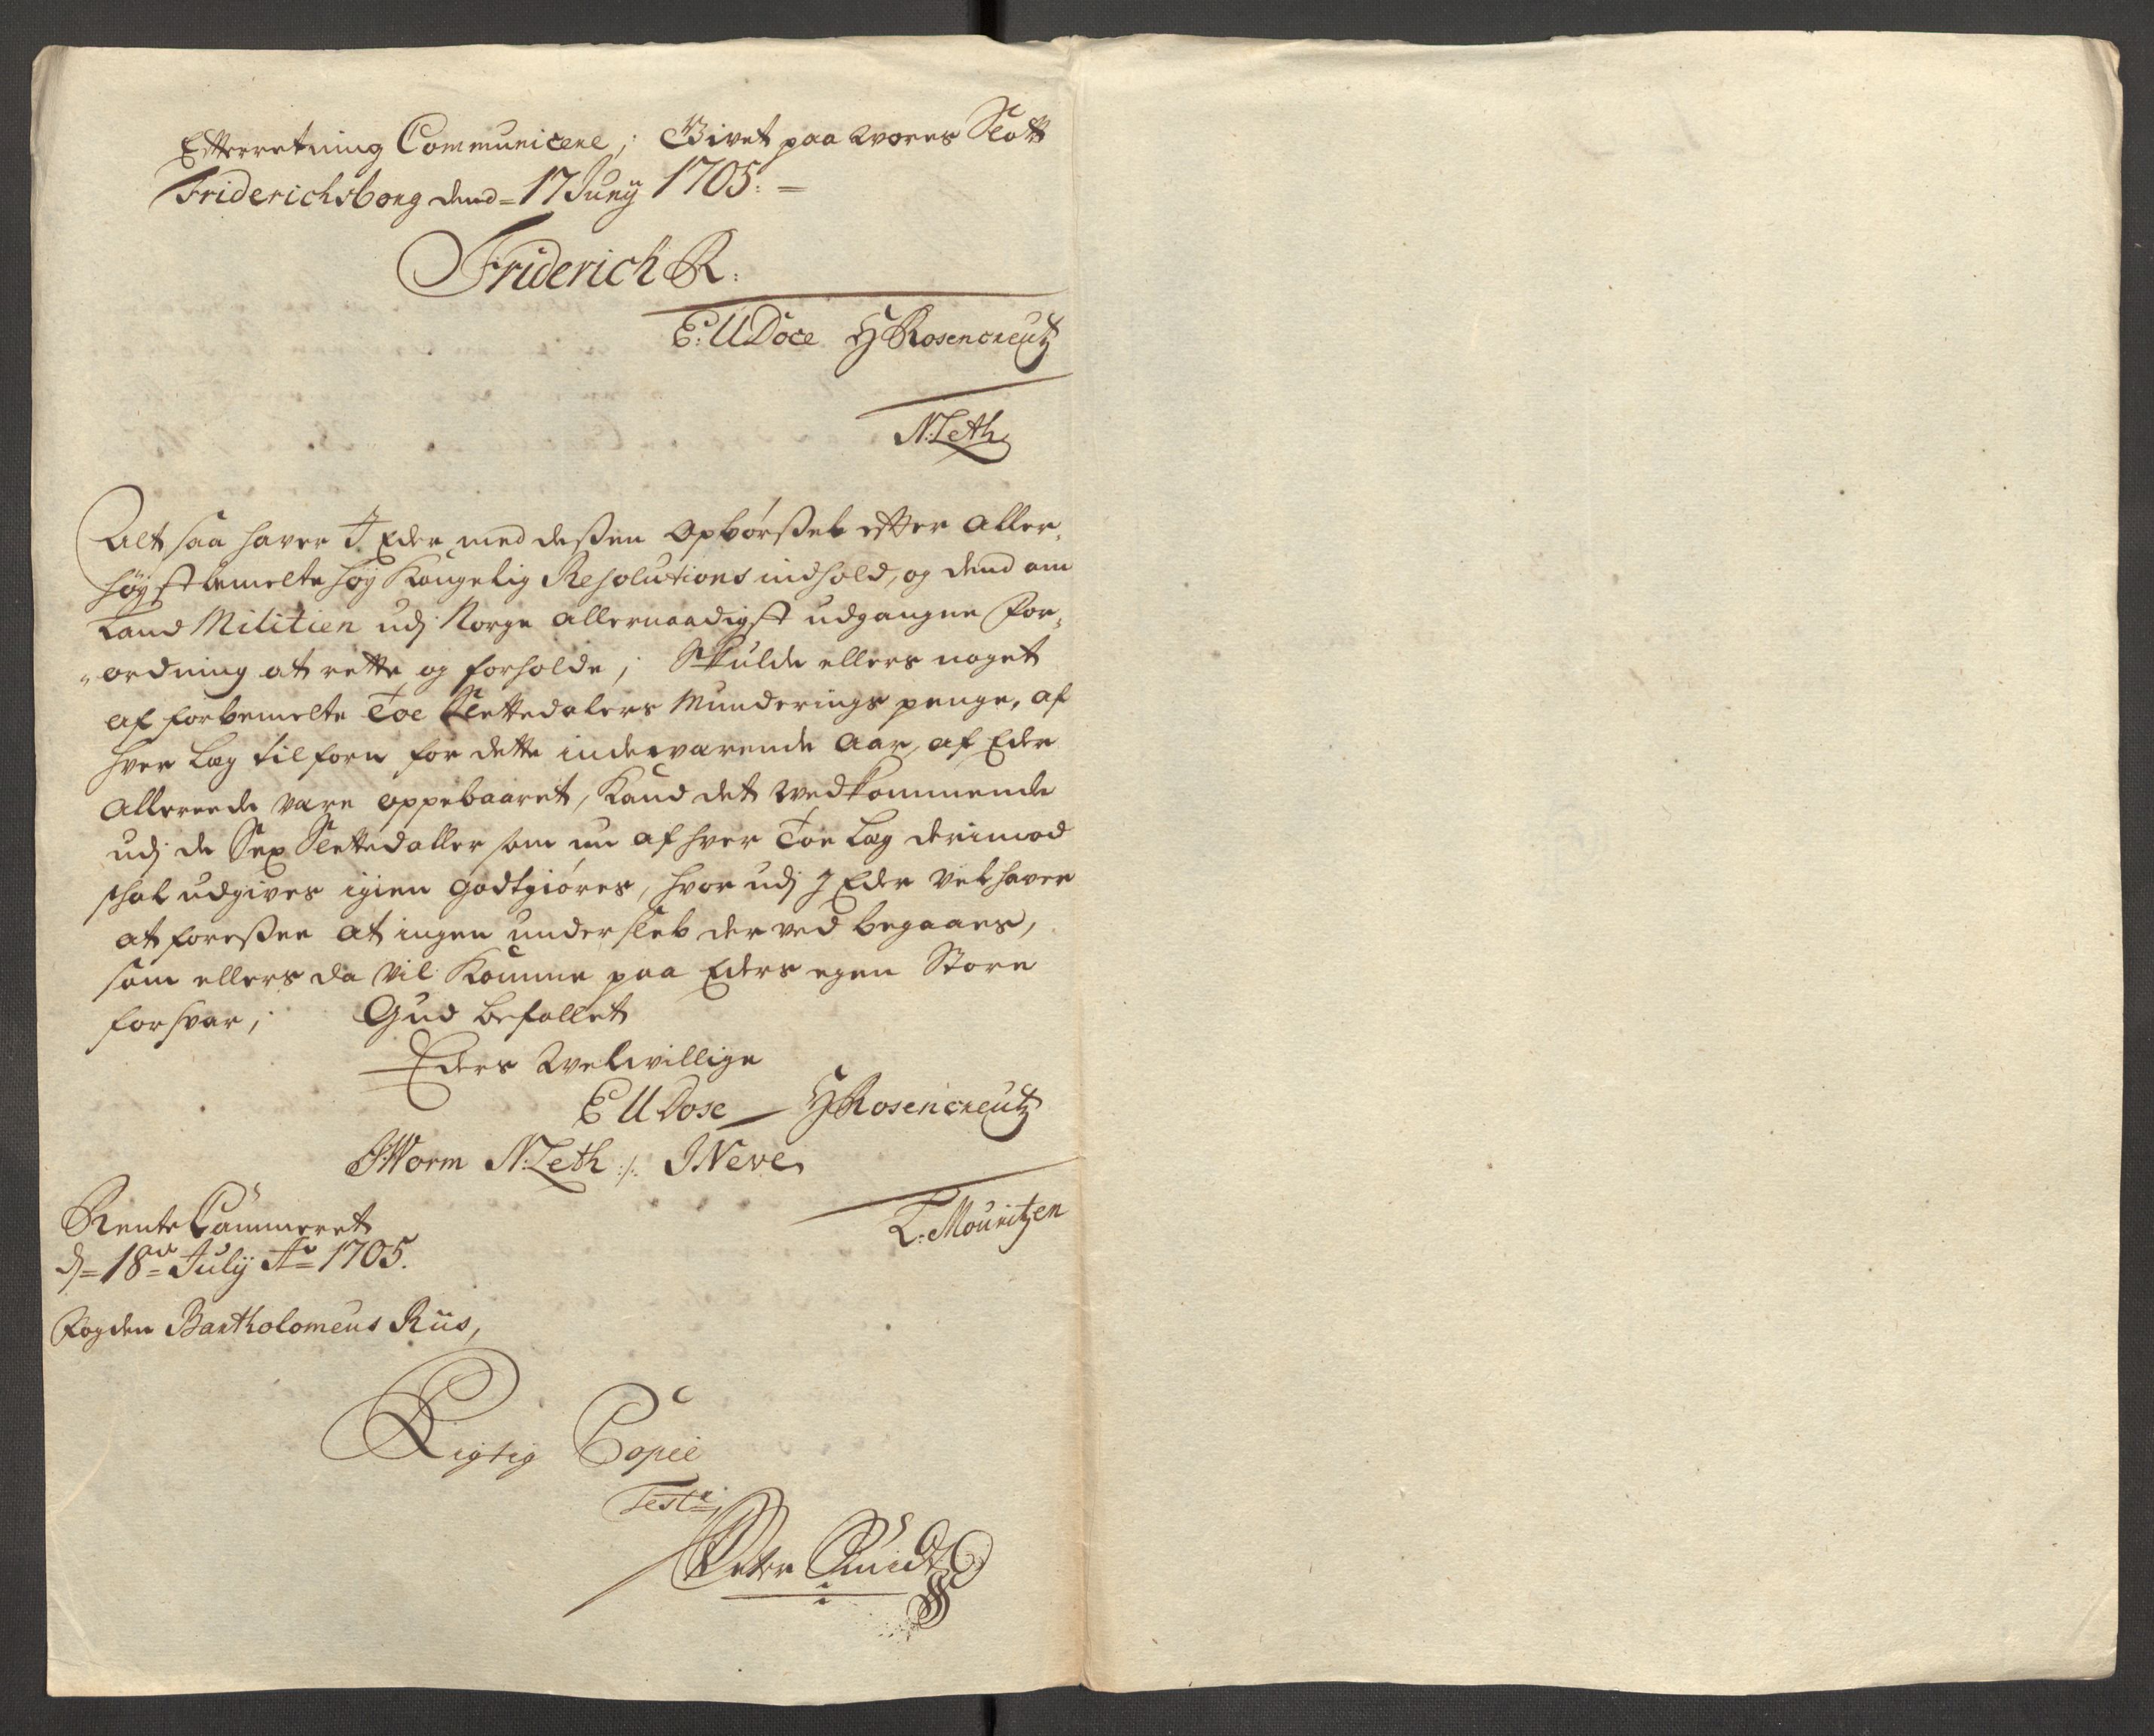 Efterretning Communicere; Givet paa Vores Slott
Friderichsborg dend = 17 Junij 1705: =
Friderich R:
E: U Doce H Rosencreutz
N: Leth
Alt saa haver I Eder med deßen Opbørßel efter Aller„
høyst bemelte høy Kongelig Resolutions indhold, og dend om
Land Militien udj Norge allernaadigst udgangne For„
„ordning at rette og forholde; Skulde ellers noget
af forbemelte Toe Slettedalers Munderings penge, af
hver Læg tilforn for dette indeværende Aar, af Eder
allereede være oppebaaret, Kand det Vedkommende
udj de Sex Slettedaller som nu af hver Toe Læg derimod
schal udgives igien godtgiøres, hvor udj I Eder vel haver
at foreßee at ingen undersleb der ved begaaes,
som ellers da vil Komme paa Eders egen Store
forsvar; Gud befallet
Eders Velvillige
E U Dose H Rosencreutz
J Worm N: Leth ./. J Neve
L: Mouritzen
Rente Cammeret
d = 18de July Ao 1705.
Fogden Bartholomeus Riis,
Rigtig Copie
Test:
Peter Smidt